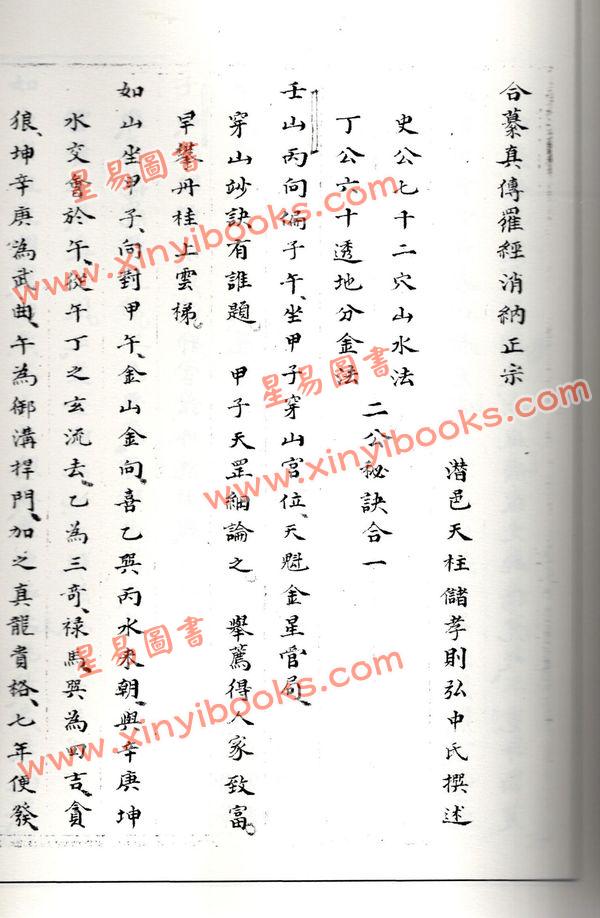 合纂真傳羅經消納正宗
潛邑天柱儲孝則弘中氏撰述
史公七十二穴山水法
丁公六十透地分金法
二公秘訣合一
壬山丙向偏子午、坐甲子穿山宮位、天魁金星管局、
穿山妙訣有誰題 甲子天罡細論之 舉薦得人家致富。
早攀丹桂上雲梯。
如山坐甲子、向對甲午、金山金向、喜乙巽丙水來朝、與辛庚坤
水交會於午、從午丁之玄流去、乙為三奇、祿馬、巽為四吉、貪
狼、坤辛庚為武曲、午為御溝捍門、加之真龍貴格、七年便發、
星易圖書
www.xinyibooks.com
星易圖書
www.xinyibooks.com
星易圖書
www.xinyibooks.com